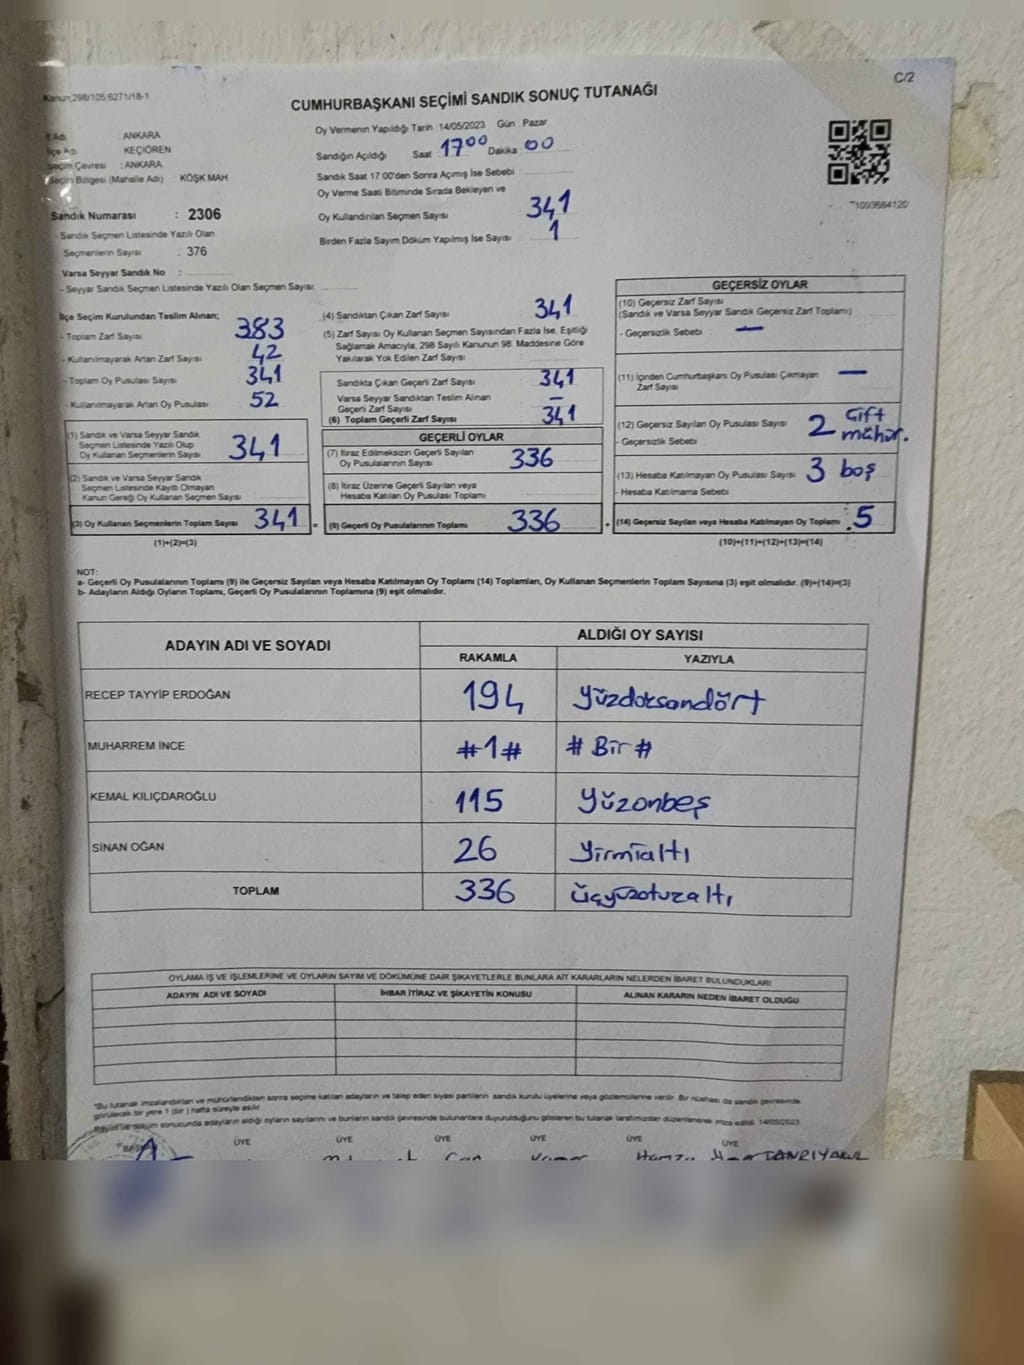 C/2
Kanun:298/105;6271/18-1
CUMHURBAŞKANI SEÇİMİ SANDIK SONUÇ TUTANAĞI
Oy Vermenin Yapıldığı Tarih :14/05/2023 Gün : Pazar
Adı ANKARA
İlçe Adı KEÇİÖREN
Seçim Çevresi : ANKARA
Seçim Bölgesi (Mahalle Adı) KÖŞK MAH
Sandığın Açıldığı Saat 17⁰⁰ Dakika 00
Sandık Saat 17.00'den Sonra Açımış İse Sebebi
Oy Verme Saati Bitiminde Sırada Bekleyen ve
Oy Kullandırılan Seçmen Sayısı 341
Birden Fazla Sayım Döküm Yapılmış İse Sayısı 1
1093684120
Sandık Numarası : 2306
- Sandık Seçmen Listesinde Yazılı Olan
Seçmenlerin Sayısı : 376
Varsa Seyyar Sandık No :
- Seyyar Sandık Seçmen Listesinde Yazılı Olan Seçmen Sayısı:
İlçe Seçim Kurulundan Teslim Alınan;
- Toplam Zarf Sayısı 383
- Kullanılmayarak Artan Zarf Sayısı 42
- Toplam Oy Pusulası Sayısı 341
- Kullanılmayarak Artan Oy Pusulası 52
(1) Sandık ve Varsa Seyyar Sandık
Seçmen Listesinde Yazılı Olup
Oy Kullanan Seçmenlerin Sayısı 341
(2) Sandık ve Varsa Seyyar Sandık
Seçmen Listesinde Kayıtlı Olmayan
Kanun Gereği Oy Kullanan Seçmen Sayısı
(3) Oy Kullanan Seçmenlerin Toplam Sayısı 341 =
(1)+(2)=(3)
(4) Sandıktan Çıkan Zarf Sayısı 341
(5) Zarf Sayısı Oy Kullanan Seçmen Sayısından Fazla İse, Eşitliği
Sağlamak Amacıyla; 298 Sayılı Kanunun 98. Maddesine Göre
Yakılarak Yok Edilen Zarf Sayısı :
Sandıkta Çıkan Geçerli Zarf Sayısı 341
Varsa Seyyar Sandıktan Teslim Alınan
Geçerli Zarf Sayısı –
(6) Toplam Geçerli Zarf Sayısı 341
GEÇERLİ OYLAR
(7) İtiraz Edilmeksizin Geçerli Sayılan
Oy Pusulalarının Sayısı 336
(8) İtiraz Üzerine Geçerli Sayılan veya
Hesaba Katılan Oy Pusulası Toplamı
(9) Geçerli Oy Pusulalarının Toplamı 336 +
GEÇERSİZ OYLAR
(10) Geçersiz Zarf Sayısı
(Sandık ve Varsa Seyyar Sandık Geçersiz Zarf Toplamı)
- Geçersizlik Sebebi : —
(11) İçinden Cumhurbaşkanı Oy Pusulası Çıkmayan —
Zarf Sayısı
(12) Geçersiz Sayılan Oy Pusulası Sayısı 2 Çift
- Geçersizlik Sebebi mühür.
(13) Hesaba Katılmayan Oy Pusulası Sayısı 3 boş
- Hesaba Katılmama Sebebi
(14) Geçersiz Sayılan veya Hesaba Katılmayan Oy Toplamı : 5
(10)+(11)+(12)+(13)=(14)
NOT:
a- Geçerli Oy Pusulalarının Toplamı (9) ile Geçersiz Sayılan veya Hesaba Katılmayan Oy Toplamı (14) Toplamları, Oy Kullanan Seçmenlerin Toplam Sayısına (3) eşit olmalıdır. (9)+(14)=(3)
b- Adayların Aldığı Oyların Toplamı, Geçerli Oy Pusulalarının Toplamına (9) eşit olmalıdır.
ADAYIN ADI VE SOYADI ALDIĞI OY SAYISI
RAKAMLA YAZIYLA
RECEP TAYYİP ERDOĞAN 194 Yüzdoksandört
MUHARREM İNCE #1# # Bir #
KEMAL KILIÇDAROĞLU 115 Yüzonbeş
SİNAN OĞAN 26 Yirmialtı
TOPLAM 336 üçyüzotuzaltı
OYLAMA İŞ VE İŞLEMLERİNE VE OYLARIN SAYIM VE DÖKÜMÜNE DAİR ŞİKAYETLERLE BUNLARA AİT KARARLARIN NELERDEN İBARET BULUNDUKLARI
ADAYIN ADI VE SOYADI İHBAR İTİRAZ VE ŞİKAYETİN KONUSU ALINAN KARARIN NEDEN İBARET OLDUĞU
"Bu tutanak imzalandıktan ve mühürlendikten sonra seçime katılan adayların ve talep eden siyasi partilerin sandık kurulu üyelerine veya gözlemcilerine verilir. Bir nüshası da sandık çevresinde
görülecek bir yere 1 (bir) hafta süreyle asılır.
sonucunda adayların aldığı oyların sayılarını ve bunların sandık çevresinde bulunanlara duyurulduğunu gösteren bu tutanak tarafımızdan düzenlenerek imza edildi. 14/05/2023
BAŞKAN ÜYE ÜYE ÜYE ÜYE ÜYE ÜYE
Can Hamza TANRIYAKUL